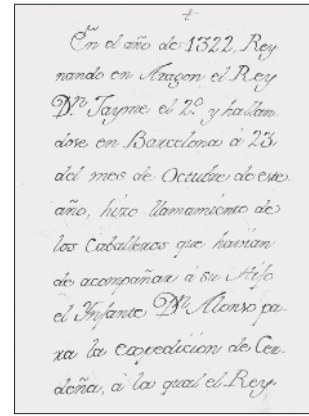 En el año de 1322, Rey
nando en Aragon el Rey
Dⁿ. Jayme el 2.º y hallan
dose en Barcelona à 23
del mes de Octubre de este
año, hizo llamamiento de
los Caballeros que havian
de acompañar à su Hijo
el Infante Dⁿ. Alonso pa-
ra la expedicion de Cer-
deña, à la qual el Rey